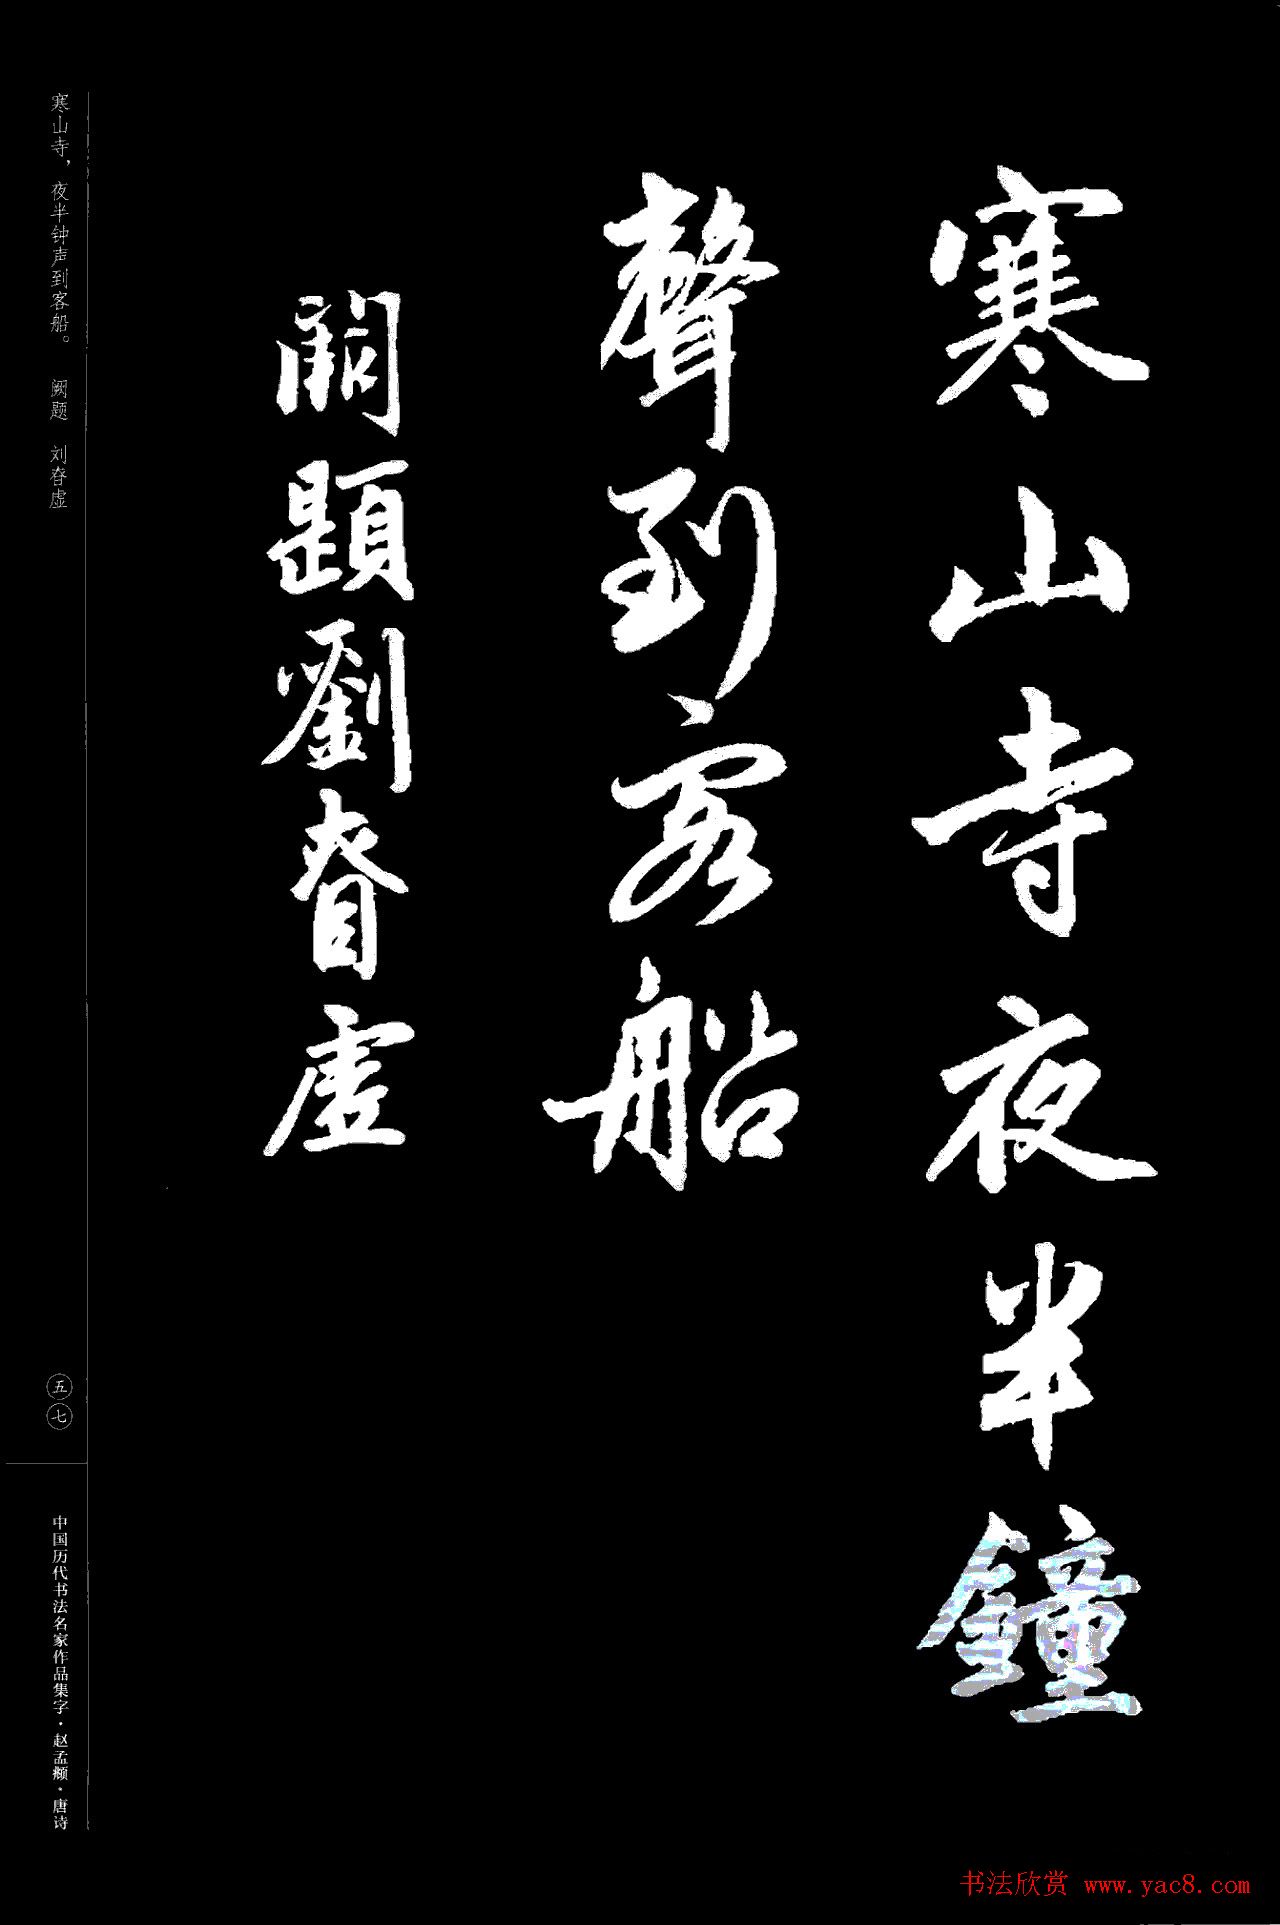 寒山寺夜半鐘
聲到客船
闕題劉眘虛
寒山寺，夜半钟声到客船。 阙题 刘眘虚
五七
中国历代书法名家作品集字·赵孟頫·唐诗
书法欣赏 www.yac8.com